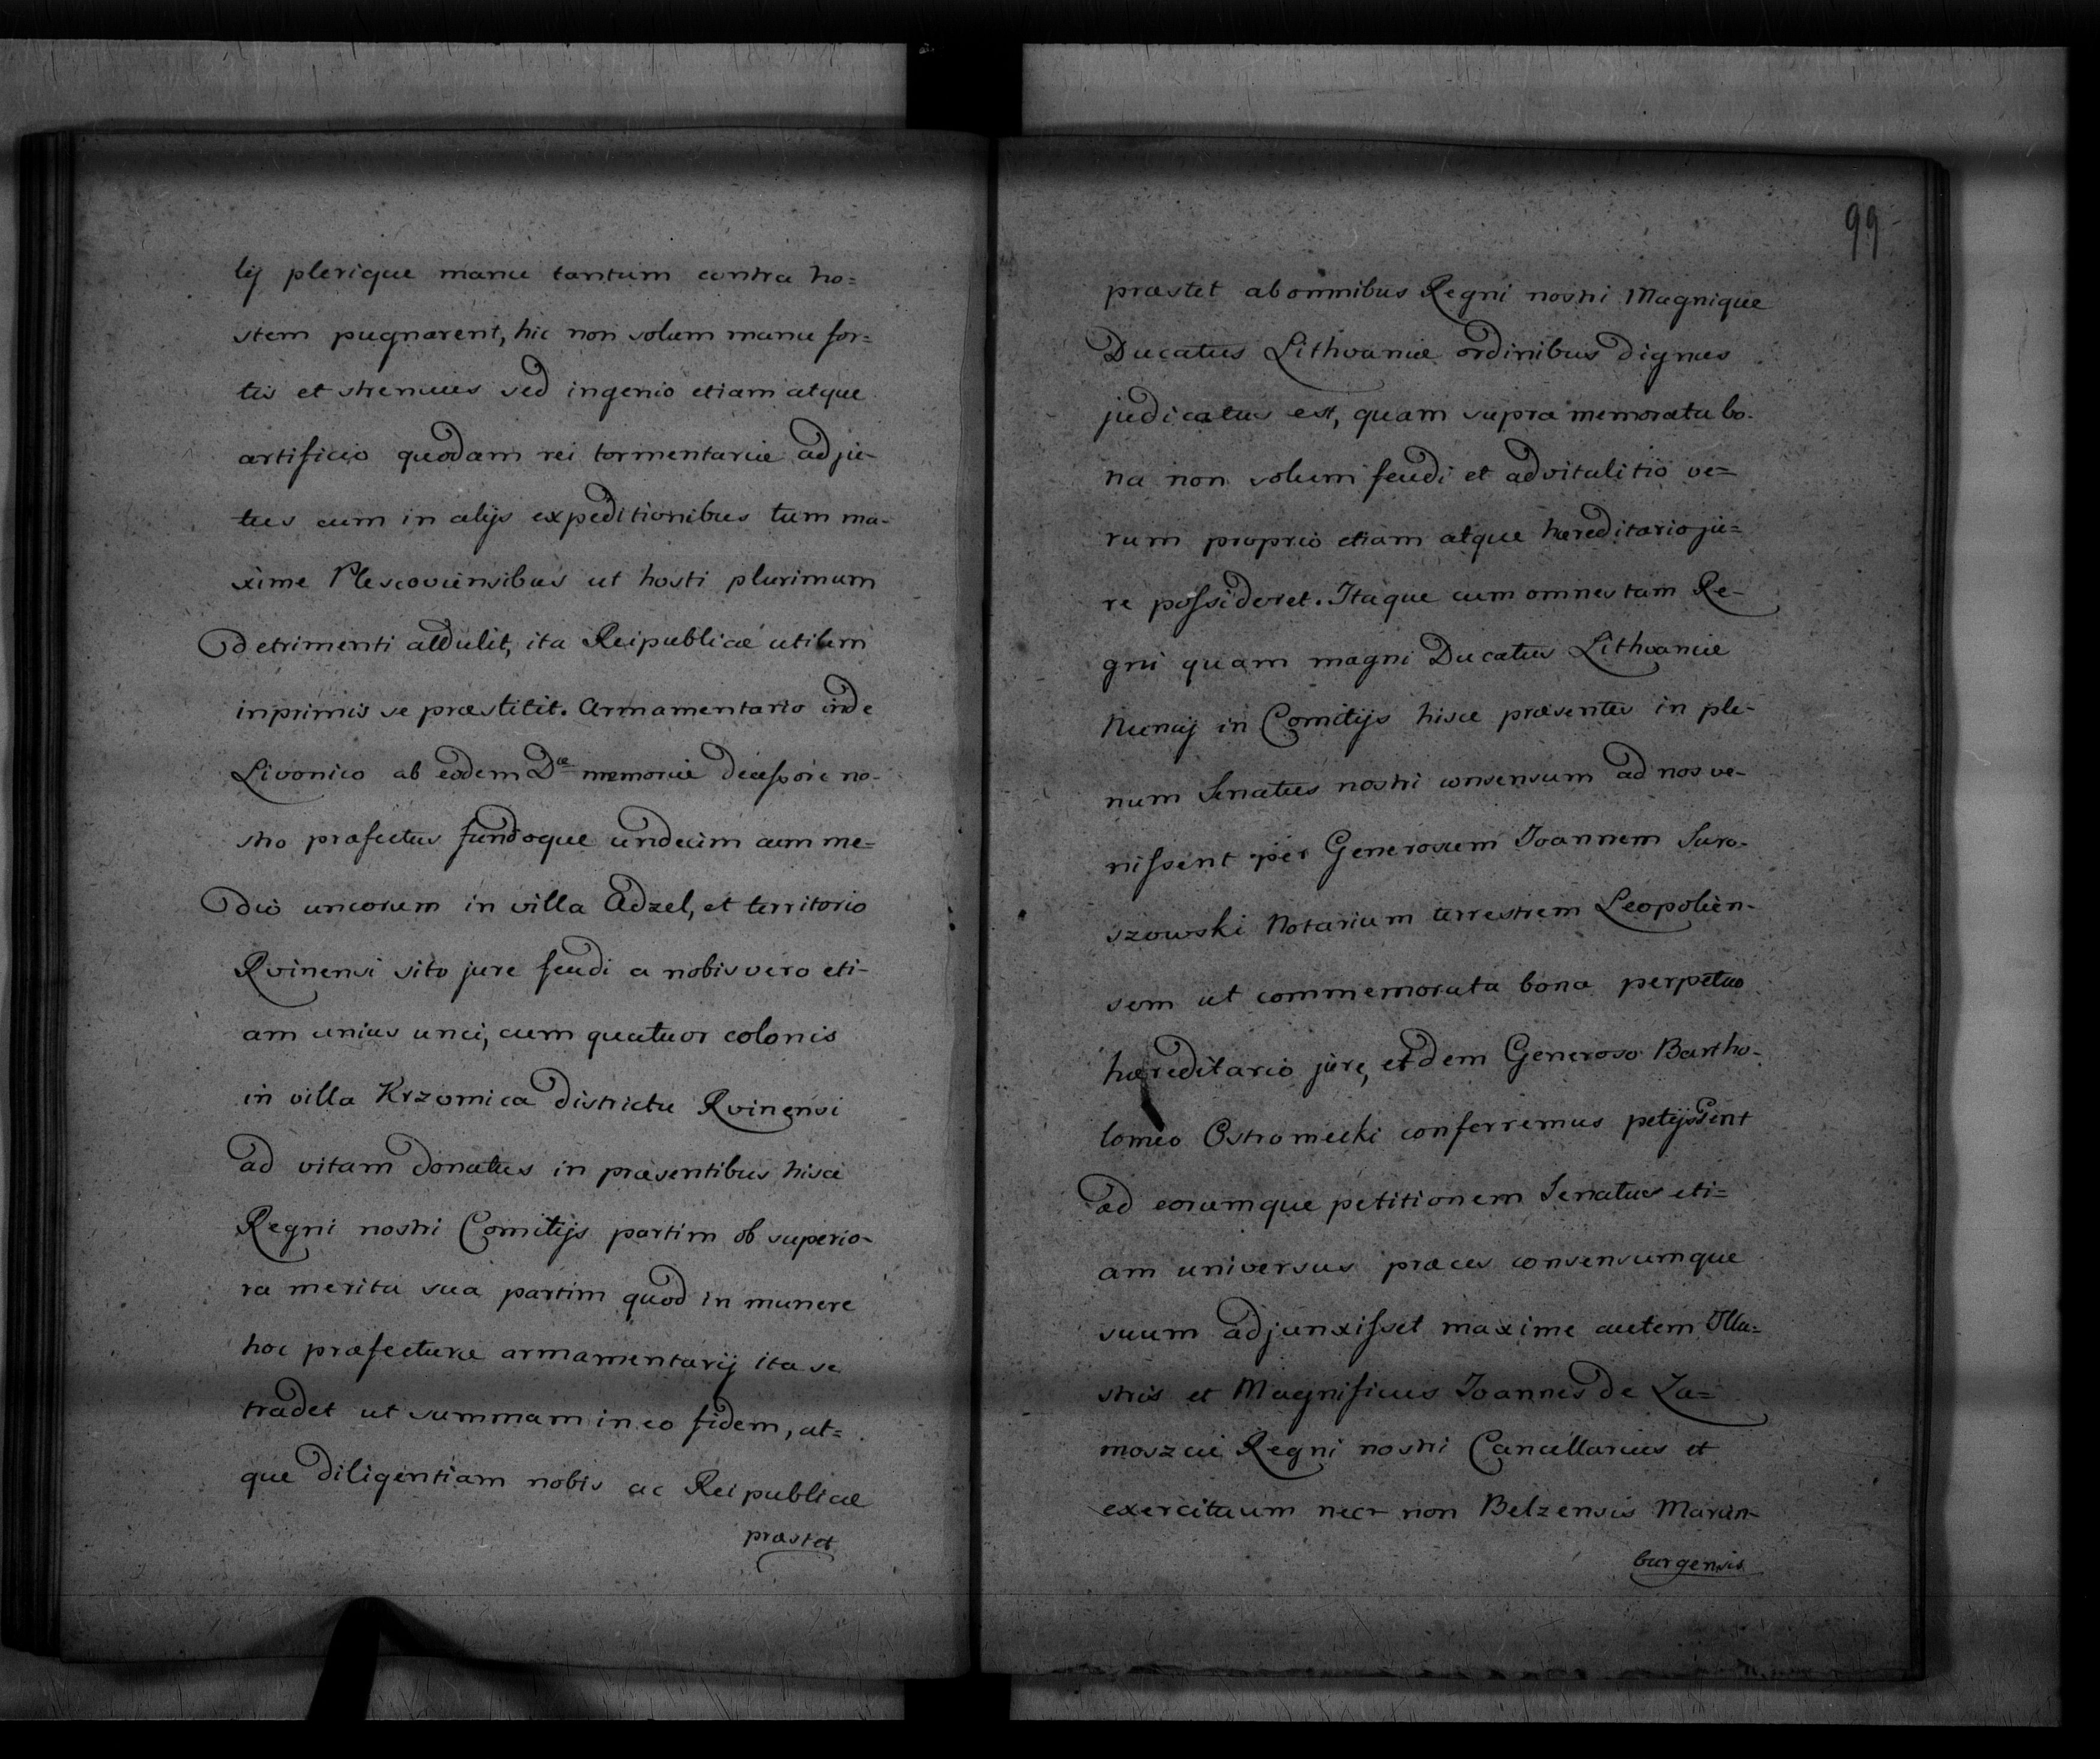 lij plerique manu tantum contra ho=
stem pugnarent, hic non solum manu for=
tis et strenuus sed ingenio etiam atque
artificio quodam rei tormentariæ adju-
tus cum in alijs expeditionibus tum ma-
xime Plescoviensibus ut hosti plurimum
detrimenti attulit, ita Reipublicæ utilem
inprimis se præstitit. Armamentario inde
Livonico ab eodem Dæ memoriæ decessore no-
stro præfectus fundoque undecim cum me=
dio uncorum in villa Adzel, et territorio
Rvinensi sito jure feudi a nobis vero eti-
am unius unci, cum quatuor colonis
in villa Krzomica districtu Rvinensi
ad vitam donatus in præsentibus hisce
Regni nostri Comitijs partim ob superio-
ra merita sua partim quod in munere
hoc præfecturæ armamentarij ita se
tradet ut summam in eo fidem, at=
que diligentiam nobis ac Reipublicæ
præstet
99
præstet ab omnibus Regni nostri Magnique
Ducatus Lithvaniæ ordinibus dignus
judicatus est, quam supra memorata bo-
na non solum feudi et advitalitio ve=
rum proprio etiam atque hæreditario ju=
re possideret. Itaque cum omnes tam Re-
gni quam magni Ducatus Lithvaniæ
Nuncij in Comitijs hisce præsentes in ple-
num Senatus nostri consensum ad nos ve-
nissent per Generosum Joannem Swo-
szowski Notarium terrestrem Leopolien-
sem ut commemorata bona perpetuo
hæreditario jure, eidem Generoso Bartho-
lomeo Ostromecki conferremus petijssent
ad eorumque petitionem Senatus eti=
am universus præces consensumque
suum adjunxisset maxime autem Illu=
stris et Magnificus Joannes de Za=
moszcie Regni nostri Cancellarius et
exercituum nec non Belzensis Marien-
burgensis